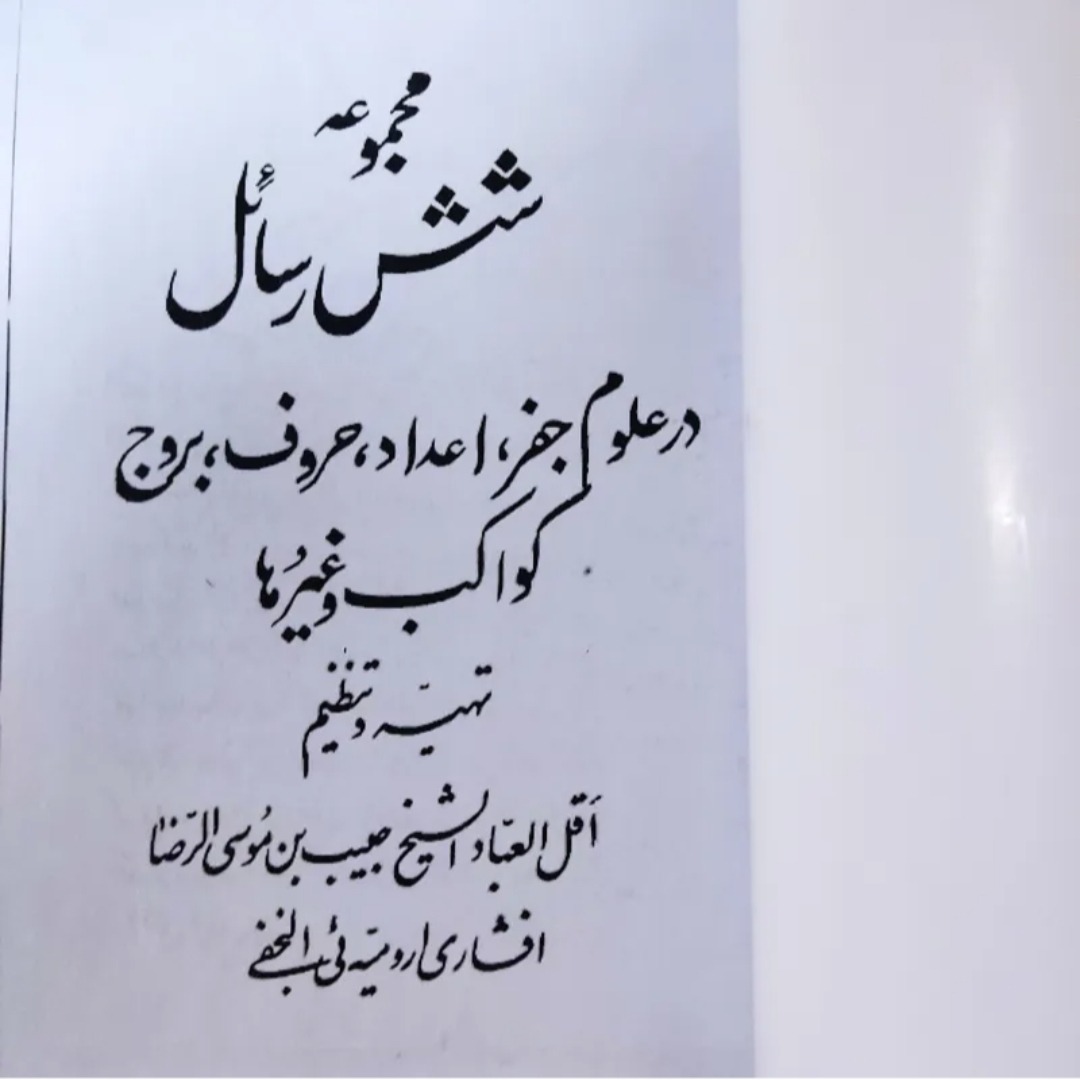 مجموعه
شش رسائل
در علوم جفر، اعداد، حروف، بروج
کواکب و غیرُها
تهیّه و تنظیم
أقل العبّاد الشیخ حبیب بن مُوسی الرّضا
افشاری ارومیّه ئی النجفی